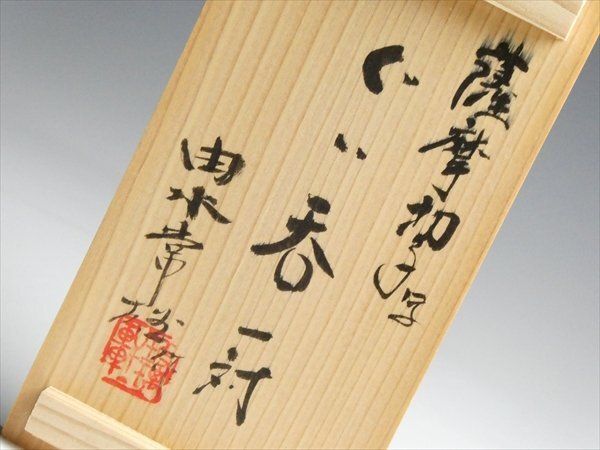 薩摩切子
ぐい呑一対
由水常雄